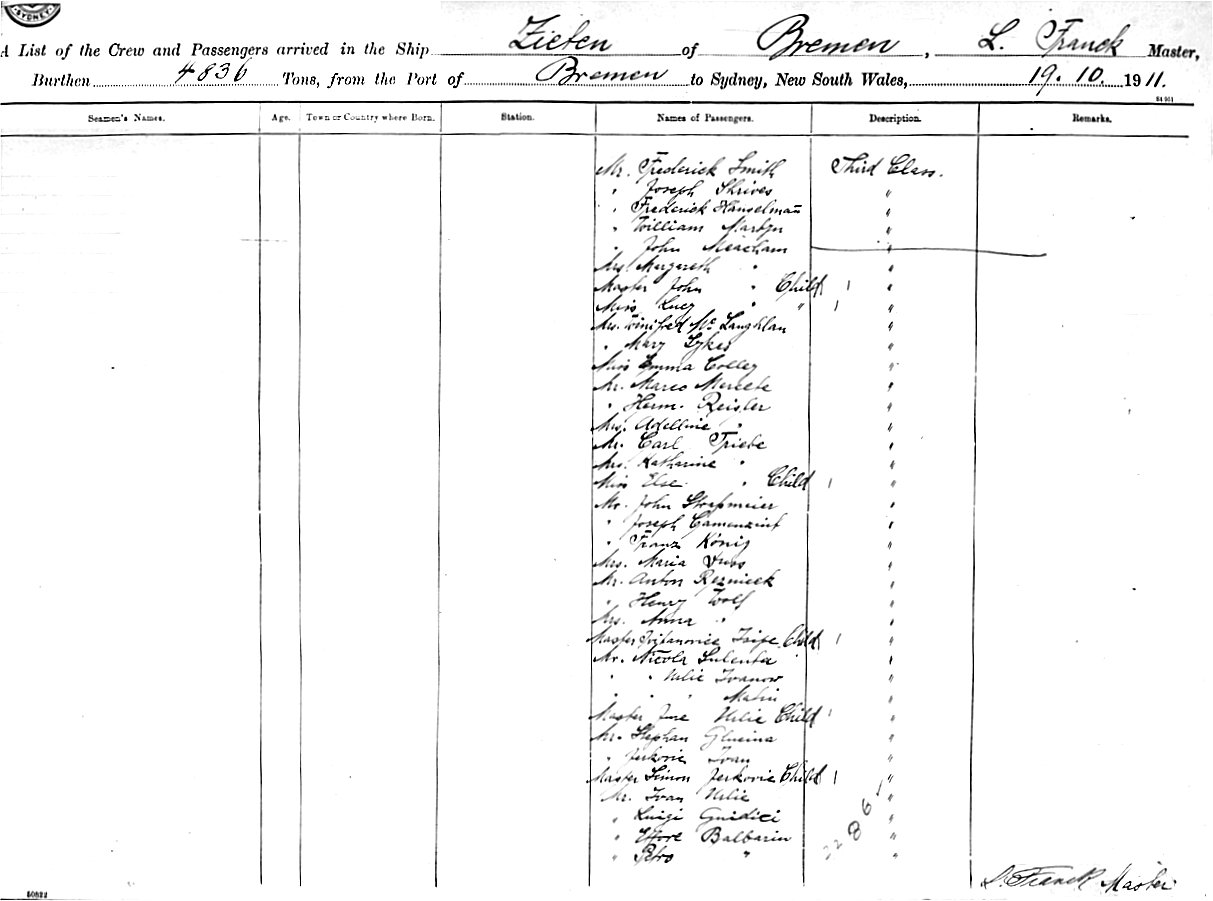 SYDNEY
A List of the Crew and Passengers arrived in the Ship Zieten of Bremen, L. Franck Master,
Burthen 4836 Tons, from the Port of Bremen to Sydney, New South Wales, 19.10.1911.
Seamen's Names. Age. Town or Country where Born. Station. Names of Passengers. Description. Remarks.
Mr. Frederick Smith Third Class.
" Joseph Shrives "
" Frederick Hanselmañ "
" William Martyn "
" John Meacham "
Mrs Margareth " "
Master John " Child 1 "
Miss Lucy " " 1 "
Mrs. Winifred Mc Laughlan "
" Mary Sykes "
Miss Emma Colley "
Mr. Marco "
" Herm. Reisler "
Mrs. Adelline " "
Mr. Carl Triebe "
Mrs. Katharine " "
Miss Else " Child 1 "
Mr. John "
" Joseph Camenzint "
" Franz König "
Mrs. Maria "
Mr. Anton Reznicek "
" Henry Wolf "
Mrs. Anna " "
Master Child 1 "
Mr. Nicola "
" " Urlic Ivanow "
" " " Matin "
Master Jure Urlic Child 1 "
Mr. Stephan Glucina "
" Jerkovic Ivan "
Master Simon Jerkovic Child 1 "
Mr. Ivan Urlic "
" Luigi Guidici "
" Ettore Balbarin "
" Petro " "
L. Franck Master
50822